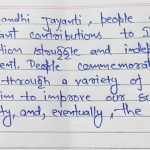 andhi Jayanti, people
ant contributions to I
tion struggle and indepe
ent. People commemora
through a variety of
im to improve our so
ty, and, eventually, the